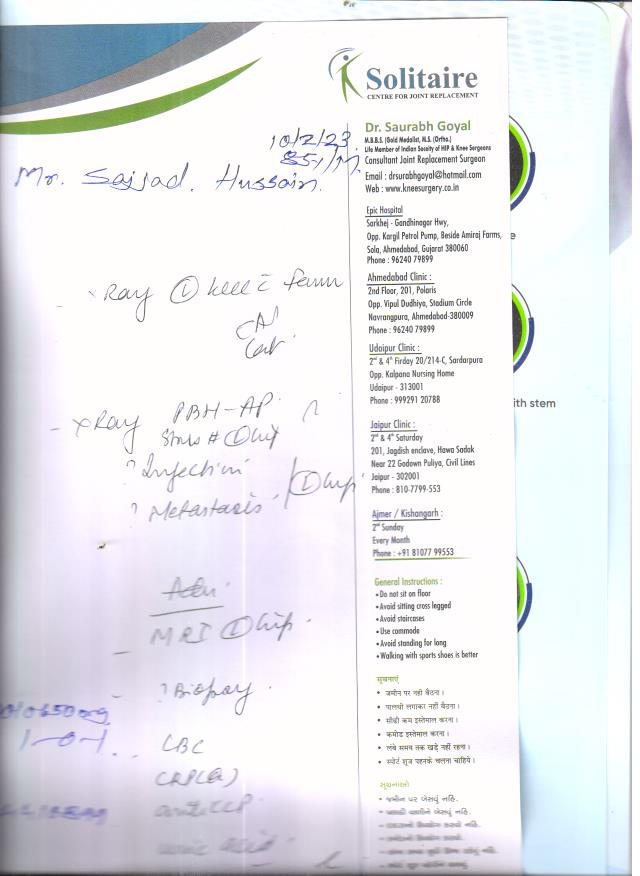 Solitaire
CENTRE FOR JOINT REPLACEMENT
Dr. Saurabh Goyal
M.B.B.S. (Gold Medalist, M.S. (Ortho.)
Life Member of Indian Society of HIP & Knee Surgeons
Consultant Joint Replacement Surgeon
Email : drsurabhgoyal@hotmail.com
Web : www.kneesurgery.co.in
Epic Hospital
Sarkhej - Gandhinagar Hwy,
Opp. Kargil Petrol Pump, Beside Amiraj Farms,
Sola, Ahmedabad, Gujarat 380060
Phone : 96240 79899
Ahmedabad Clinic :
2nd Floor, 201, Polaris
Opp. Vipul Dudhiya, Stadium Circle
Navrangpura, Ahmedabad-380009
Phone : 96240 79899
Udaipur Clinic :
2nd & 4th Firday 20/214-C, Sardarpura
Opp. Kalpana Nursing Home
Udaipur - 313001
Phone : 99929120788
Jaipur Clinic :
2nd & 4th Saturday
201, Jagdish enclave, Hawa Sadak
Near 22 Godown Puliya, Civil Lines
Jaipur - 302001
Phone : 810-7799-553
Ajmer / Kishangarh :
2nd Sunday
Every Month
Phone : +91 81077 99553
General Instructions :
• Do not sit on floor
• Avoid sitting cross legged
• Avoid staircases
• Use commode
• Avoid standing for long
• Walking with sports shoes is better
सूचनाएं
• जमीन पर नहीं बैठना।
• पालथी लगाकर नहीं बैठना।
• सीढ़ी कम इस्तेमाल करना।
• कमोड इस्तेमाल करना।
• लंबे समय तक खड़े नहीं रहना।
• स्पोर्ट शूज पहनके चलना चाहिये।
સૂચનાઓ
• જમીન પર બેસવું નહિ.
10/2/23
85y/M
Mr. Sajjad. Hussain.
- xRay Ⓛ knee c̄ femur
- xRay PBH-AP
? Infection
? Metastasis
Ⓛ hip
Adv.
- MRI Ⓛ hip.
- ? Biopsy.
1-0-1
CBC
CRP(Q)
uric acid
ith stem